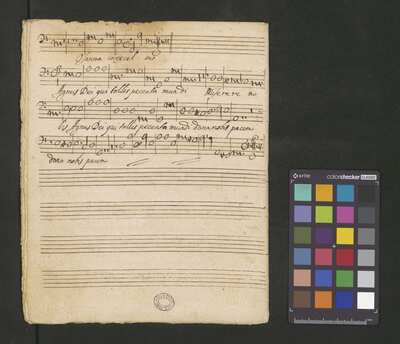 Agnus Dei qui tollis peccata mundi Miserere no
Agnus Dei qui tollis peccata mundi dona nobis pacem
dona nobis pacem
x-rite colorchecker CLASSIC